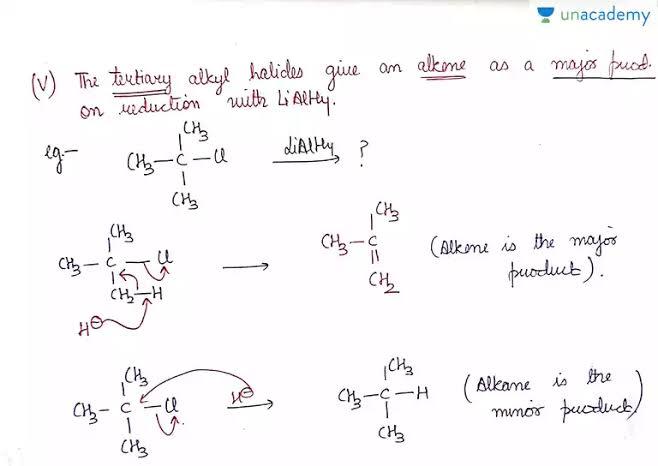 unacademy
(V) The tertiary alkyl halides give an alkene as a major prod.
on reduction with LiAlH4.
eg.-
CH3
CH3-C-Cl
CH3
LiAlH4
?
CH3
CH3-C-Cl
CH2-H
H⊖
CH3
CH3-C
CH2
(Alkene is the major
product).
CH3
CH3-C-Cl
CH3
H⊖
CH3
CH3-C-H
CH3
(Alkane is the
minor product)